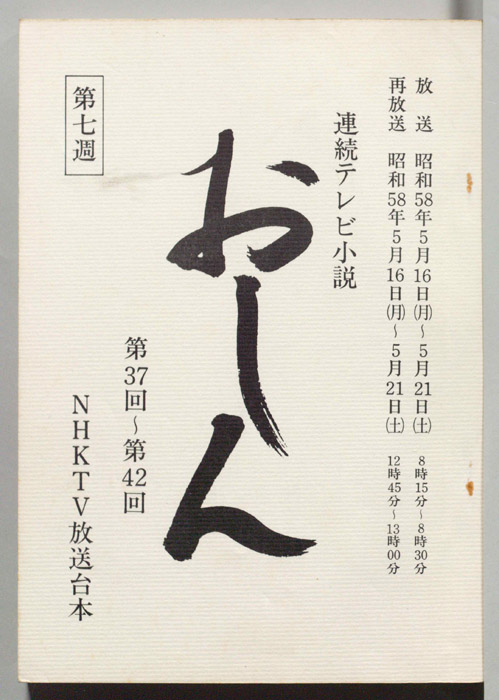 放送 昭和58年5月16日(月)～5月21日(土) 8時15分～8時30分
再放送 昭和58年5月16日(月)～5月21日(土) 12時45分～13時00分
連続テレビ小説
おしん
第37回～第42回
NHKTV放送台本
第七週